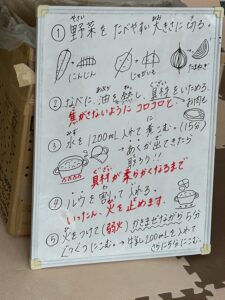 ① 野菜を たべやすい 大きさに 切る。
にんじん じゃがいも たまねぎ
② なべに、油を熱し、具材をいためる。
焦がさないように コロコロと
お肉も
③ 水を 1200mL 入れて 煮こむ。(15分)
あくが出てきたら
取ろう!!
具材が 柔らかくなるまで
④ ルウを 割って 入れる。
いったん、火を止めます。
⑤ 火をつけて(弱火) かきまぜながら 5分
ぐつぐつにこむ。→ 牛乳200mLを入れて
さらににこむ